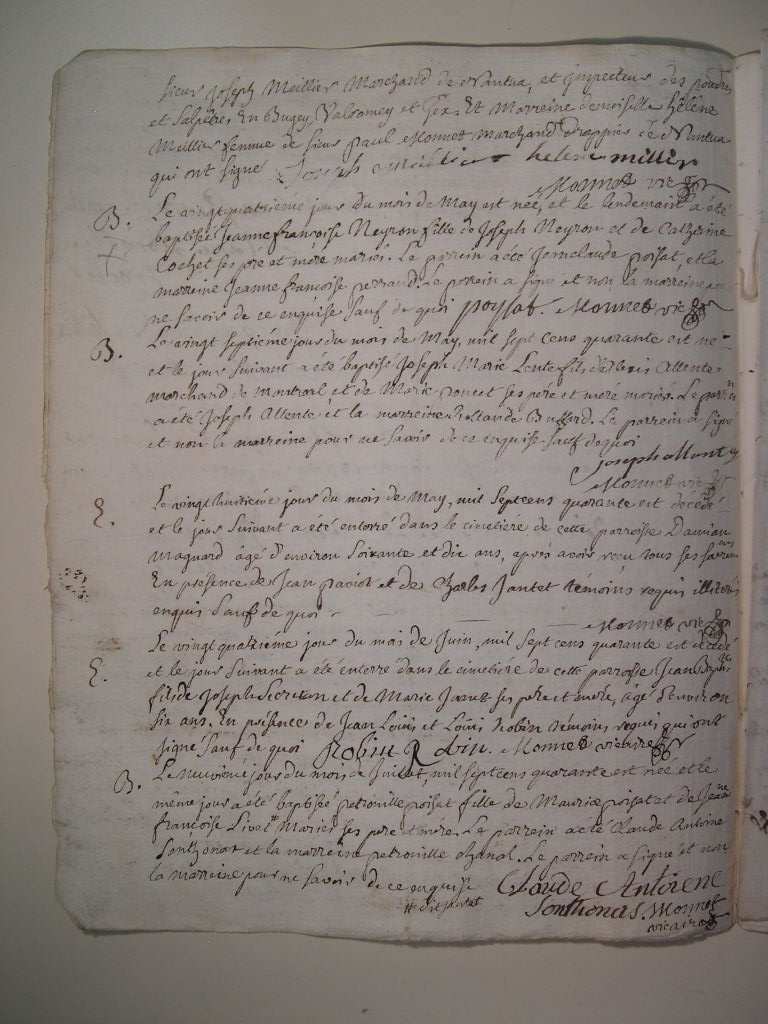 Sieur Joseph Meillier Marchand de Nantua, et Inspecteur des poudres
et Salpêtres En Bugey, Valromey et Gex, Et Marreine demoiselle hélène
Meillier femme de Sieur paul Monnet Marchand drappier de Nantua
qui ont signé Joseph helene millier
Monnet vic
B. Le vingt quatrième jour du mois de May est née, et le lendemain a été
baptisée Jeanne françoise Neyron fille de Joseph Neyron et de Catherine
Cochet ses pére et mére mariés. Le parrein a été poisat, et la
marreine Jeanne francoise perraud. Le parrein a signé et non la marreine
ne savoir de ce enquise sauf de quoi poysat. Monnet vic
B. Le vingt septième jour du mois de May, mil sept cens quarante est né
et le jour suivant a été baptisé Joseph Marie Lente fils de Allente
marchand de montreal et de Marie ses pére et mére mariés. Le parrein
a été Joseph Allente et la marreine Le parrein a signé
et non la marreine pour ne savoir de ce enquise sauf de quoi
Joseph
Monnet vic
E. Le vingt huitième jour du mois de May, mil sept cens quarante est décédé
et le jour suivant a été enterré dans le cimetière de cette parroisse Damian
Maguard agé d'environ soixante et dix ans, après avoir reçu tous ses sacremens
En présence de Jean et de Jantet témoins requis illiterés
enquis sauf de quoi
Monnet vic
E. Le vingt quatrième jour du mois de Juin, mil sept cens quarante est décédé
et le jour suivant a été enterré dans le cimetière de cette parroisse Jean
fils de Joseph Secretan et de Marie ses pere et mere, agé d'environ
six ans. En présence de Jean Louis et Louis Robin témoins requis qui ont
signé sauf de quoi Robin Robin. Monnet vicaire
B. Le neuvième jour du mois de Juillet, mil sept cens quarante est née et le
même jour a été baptisée petronille poisat fille de Maurice poisat et de Jeanne
françoise Livet # Mariés ses pere et mére. Le parrein a été Claude Antoine
Sonthonax et la marreine petronille chanal. Le parrein a signé et non
la marreine pour ne savoir de ce enquise Claude Antoiene
Sonthonas. Monnet
vicaire